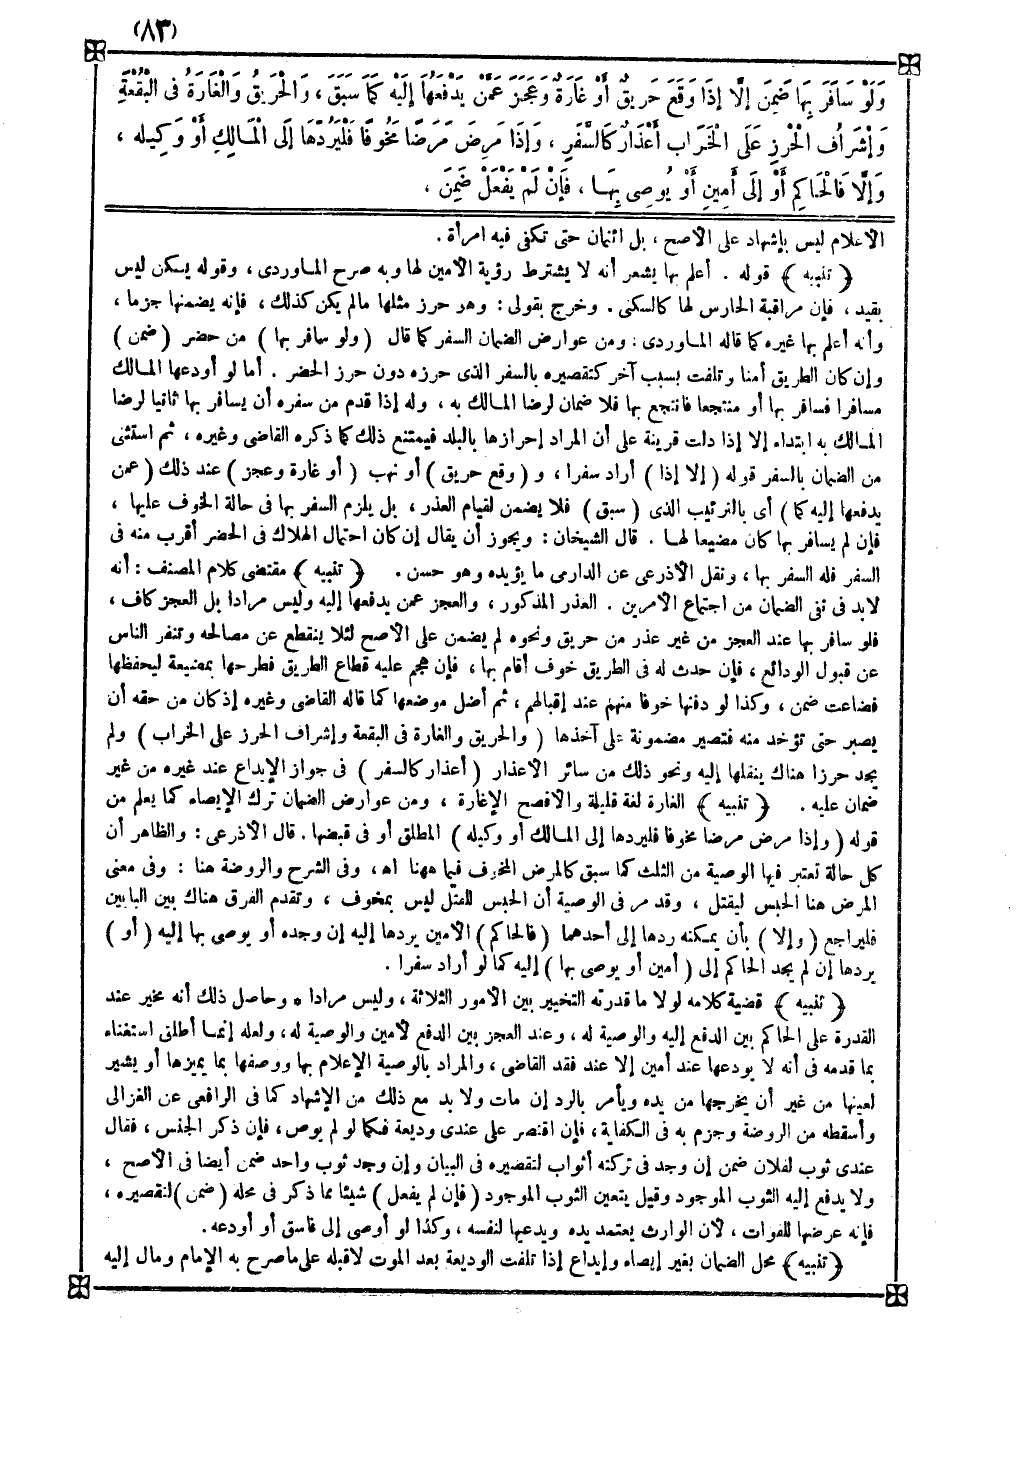 (٨٣)
وَلَوْ سَافَرَ بِهَا ضَمِنَ إِلَّا إِذَا وَقَعَ حَرِيقٌ أَوْ غَارَةٌ وَعَجَزَ عَمَّنْ يَدْفَعُهَا إِلَيْهِ كَمَا سَبَقَ ، وَالْحَرِيقُ وَالْغَارَةُ فِى الْبُقْعَةِ
وَإِشْرَافُ الْحِرْزِ عَلَى الْخَرَابِ أَعْذَارٌ كَالسَّفَرِ ، وَإِذَا مَرِضَ مَرَضًا مَخُوفًا فَلْيَرُدَّهَا إِلَى الْمَالِكِ أَوْ وَكِيلِهِ ،
وَإِلَّا فَالْحَاكِمِ أَوْ إِلَى أَمِينٍ أَوْ يُوصِى بِهَا ، فَإِنْ لَمْ يَفْعَلْ ضَمِنَ ،
الاعلام ليس بإشهاد على الأصح ، بل ائتمان حتى تكفى فيه امرأة .
﴿ تنبيه ﴾ قوله . أعلم بها يشعر أنه لا يشترط رؤية الأمين لها وبه صرح الماوردى ، وقوله يسكن ليس
بقيد ، فإن مراقبة الحارس لها كالسكنى . وخرج بقولى : وهو حرز مثلها مالم يكن كذلك ، فإنه يضمنها جزما ،
وأنه أعلم بها غيره كما قاله الماوردى : ومن عوارض الضمان السفر كما قال ( ولو سافر بها ) من حضر ( ضمن )
وإن كان الطريق أمنا وتلفت بسبب آخر كتقصيره بالسفر الذى حرزه دون حرز الحضر . أما لو أودعها المالك
مسافرا فسافر بها أو منتجعا فانتجع بها فلا ضمان لرضا المالك به ، وله إذا قدم من سفره أن يسافر بها ثانيا لرضا
المالك به ابتداء إلا إذا دلت قرينة على أن المراد إحرازها بالبلد فيمتنع ذلك كما ذكره القاضى وغيره ، ثم استثنى
من الضمان بالسفر قوله ( إلا إذا ) أراد سفرا ، و ( وقع حريق ) أو نهب ( أو غارة وعجز ) عند ذلك ( عمن
يدفعها إليه كما ) أى بالترتيب الذى ( سبق ) فلا يضمن لقيام العذر ، بل يلزم السفر بها فى حالة الخوف عليها ،
فإن لم يسافر بها كان مضيعا لها . قال الشيخان : ويجوز أن يقال إن كان احتمال الهلاك فى الحضر أقرب منه فى
السفر فله السفر بها ، ونقل الأذرعى عن الدارمى ما يؤيده وهو حسن . ﴿ تنبيه ﴾ مقتضى كلام المصنف : أنه
لابد فى نفى الضمان من اجتماع الأمرين . العذر المذكور ، والعجز عمن يدفعها إليه وليس مرادا بل العجز كاف ،
فلو سافر بها عند العجز من غير عذر من حريق ونحوه لم يضمن على الأصح لئلا ينقطع عن مصالحه وتنفر الناس
عن قبول الودائع ، فإن حدث له فى الطريق خوف أقام بها ، فإن هجم عليه قطاع الطريق فطرحها بمضيعة ليحفظها
فضاعت ضمن ، وكذا لو دفنها خوفا منهم عند إقبالهم ، ثم أضل موضعها كما قاله القاضى وغيره إذ كان من حقه أن
يصبر حتى تؤخذ منه فتصير مضمونة على آخذها ( والحريق والغارة فى البقعة وإشراف الحرز على الخراب ) ولم
يجد حرزا هناك ينقلها إليه ونحو ذلك من سائر الأعذار ( أعذار كالسفر ) فى جواز الإيداع عند غيره من غير
ضمان عليه . ﴿ تنبيه ﴾ الغارة لغة قليلة والأفصح الإغارة ، ومن عوارض الضمان ترك الإيصاء كما يعلم من
قوله ( وإذا مرض مرضا مخوفا فليردها إلى المالك أو وكيله ) المطلق أو فى قبضها . قال الأذرعى : والظاهر أن
كل حالة تعتبر فيها الوصية من الثلث كما سبق كالمرض المخوف فيما ههنا اه ، وفى الشرح والروضة هنا : وفى معنى
المرض هنا الحبس ليقتل ، وقد مر فى الوصية أن الحبس للقتل ليس بمخوف ، وتقدم الفرق هناك بين البابين
فليراجع ( وإلا ) بأن يمكنه ردها إلى أحدهما ( فالحاكم ) الأمين يردها إليه إن وجده أو يوصى بها إليه ( أو )
يردها إن لم يجد الحاكم إلى ( أمين أو يوصى بها ) إليه كما لو أراد سفرا .
﴿ تنبيه ﴾ قضية كلامه لولا ما قدرته التخيير بين الأمور الثلاثة ، وليس مرادا * وحاصل ذلك أنه مخير عند
القدرة على الحاكم بين الدفع إليه والوصية له ، وعند العجز بين الدفع لأمين والوصية له ، ولعله إنما أطلق استغناء
بما قدمه فى أنه لا يودعها عند أمين إلا عند فقد القاضى ، والمراد بالوصية الإعلام بها ووصفها بما يميزها أو يشير
لعينها من غير أن يخرجها من يده ويأمر بالرد إن مات ولا بد مع ذلك من الإشهاد كما فى الرافعى عن الغزالى
وأسقطه من الروضة وجزم به فى الكفاية ، فإن اقتصر على عندى وديعة فكما لو لم يوص ، فإن ذكر الجنس ، فقال
عندى ثوب لفلان ضمن إن وجد فى تركته أثواب لتقصيره فى البيان وإن وجد ثوب واحد ضمن أيضا فى الأصح ،
ولا يدفع إليه الثوب الموجود وقيل يتعين الثوب الموجود ( فإن لم يفعل ) شيئا مما ذكر فى محله ( ضمن ) لتقصيره ،
فإنه عرضها للفوات ، لأن الوارث يعتمد يده ويدعيها لنفسه ، وكذا لو أوصى إلى فاسق أو أودعه .
﴿ تنبيه ﴾ محل الضمان بغير إيصاء وإيداع إذا تلفت الوديعة بعد الموت لاقبله على ماصرح به الإمام ومال إليه